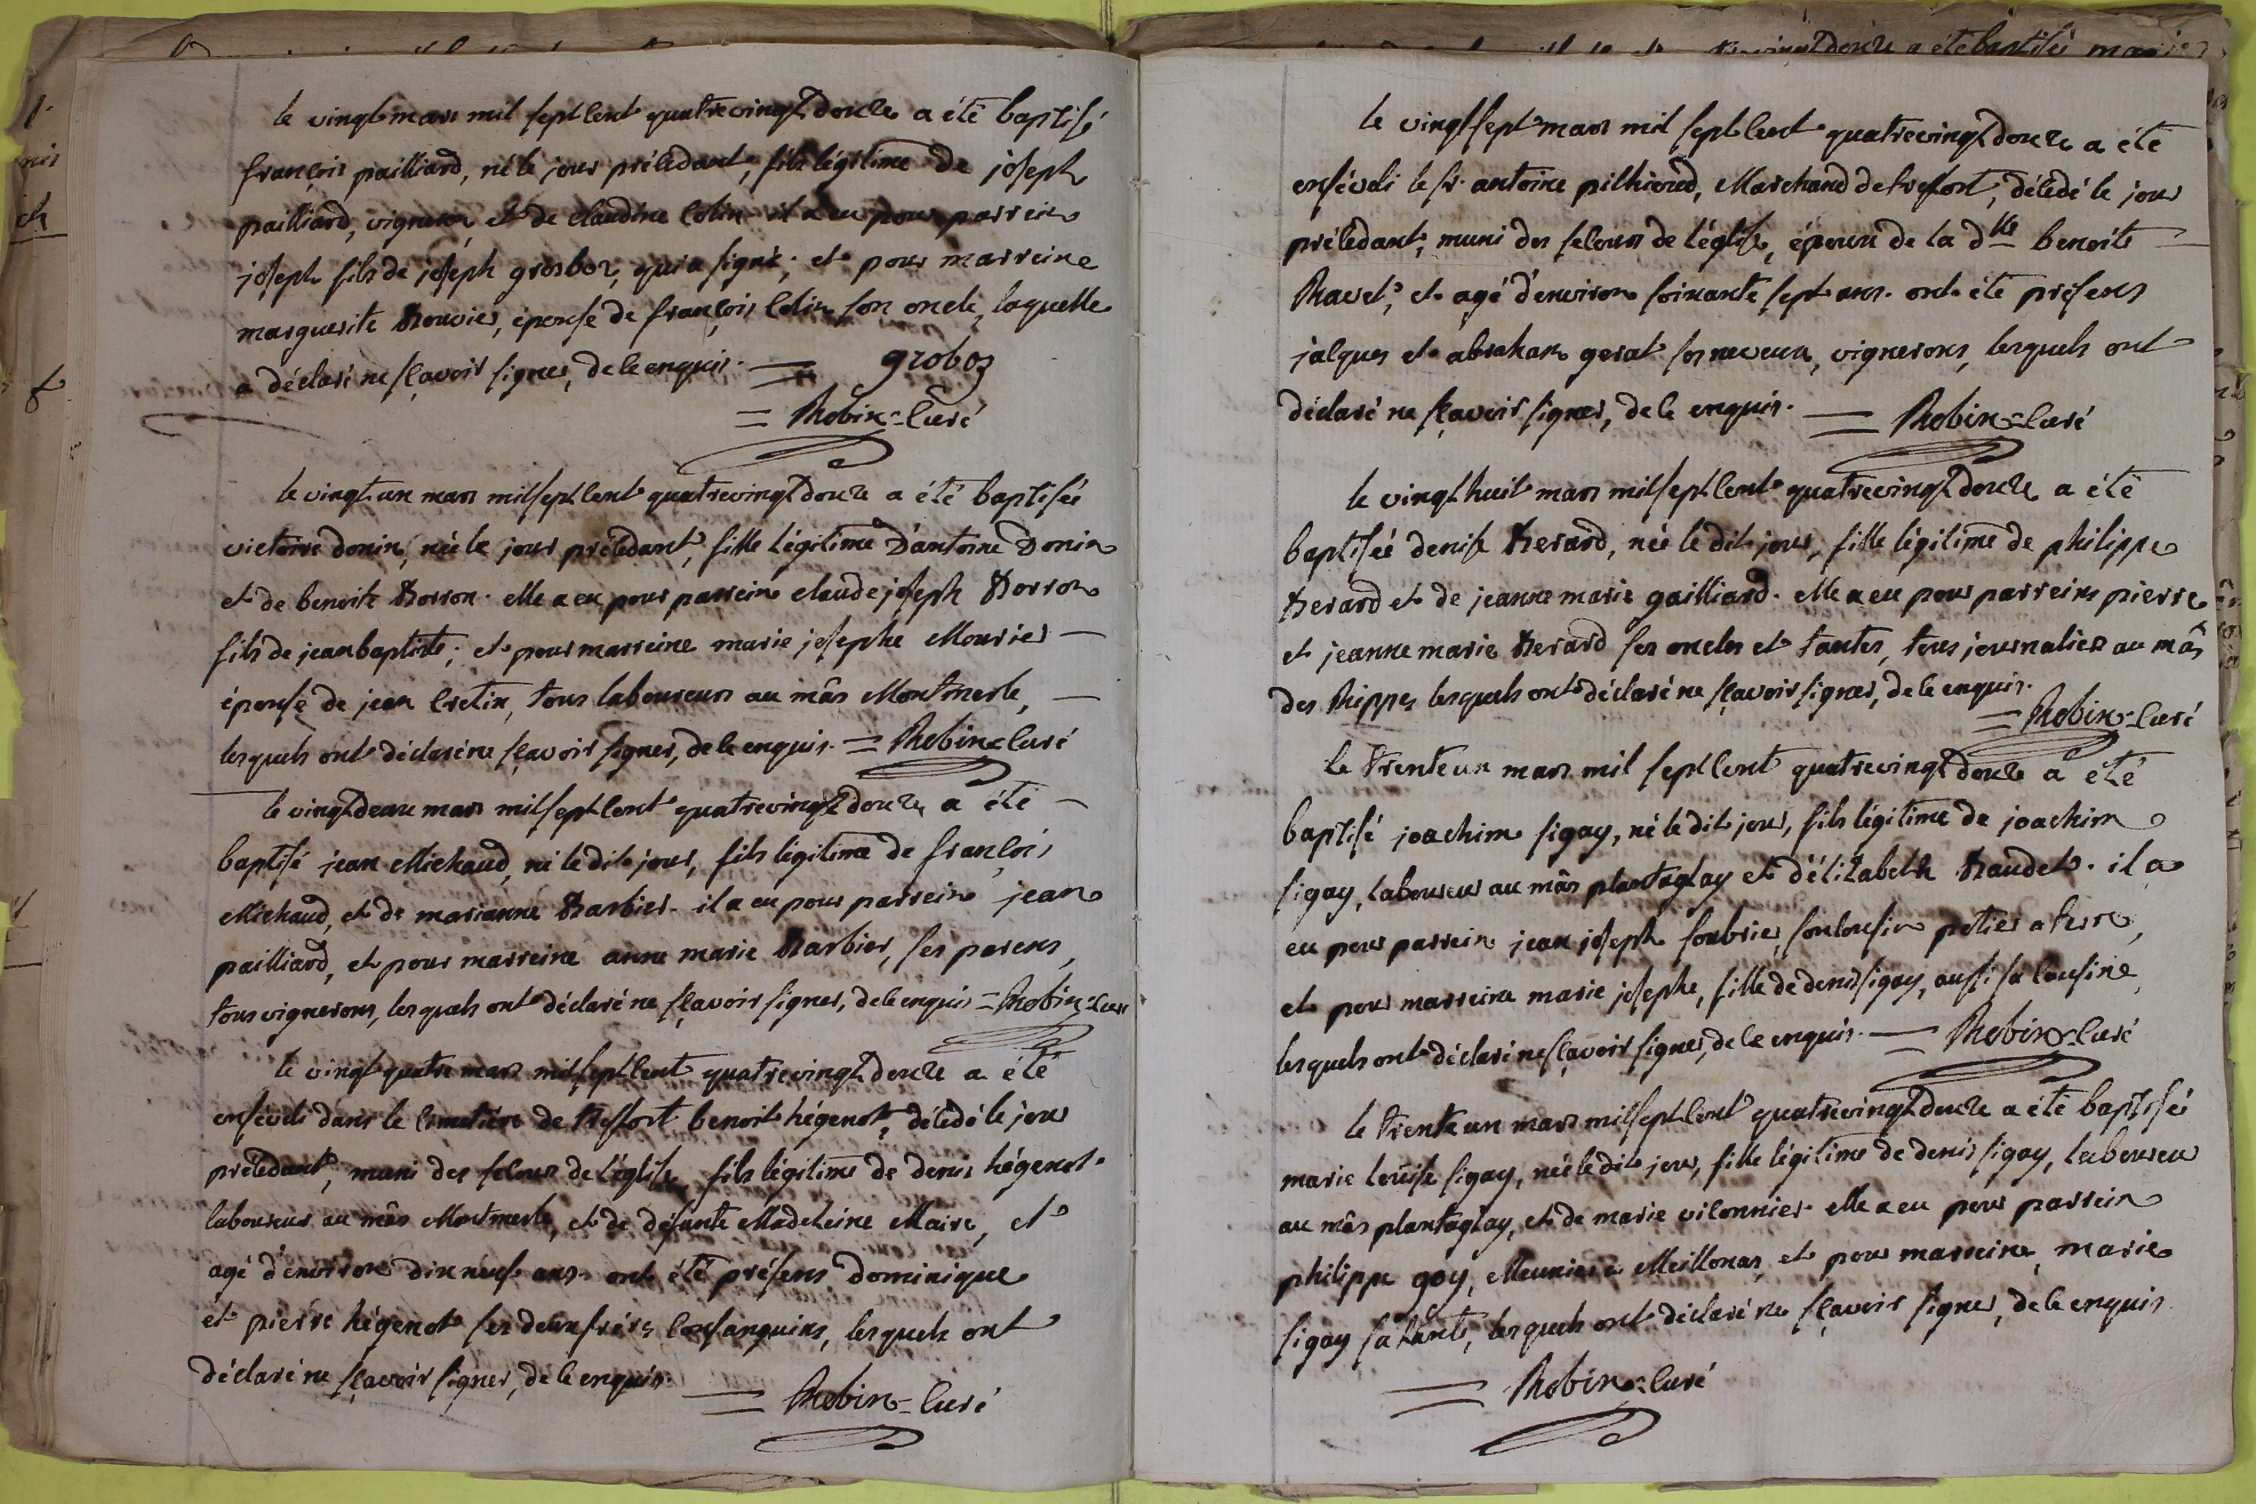 le vingt mars mil sept cent quatrevingt douze a été baptisé
françois pailliard, né le jour précédant, fils légitime de joseph
pailliard, vigneron et de claudine Colin. il a eu pour parrein
joseph fils de joseph grosboz, qui a signé; et pour marreine
marguerite Bouvier, épouse de françois Colin son oncle, laquelle
a déclaré ne sçavoir signer, de ce enquis. groboz
= Robin = Curé
le vingt un mars mil sept cent quatrevingt douze a été baptisée
victoire donin, née le jour précédant, fille légitime d'antoine Donin
et de benoite Borron. elle a eu pour parrein claude joseph Borron
fils de jean baptiste; et pour marreine marie josephe Mourier
épouse de jean Cretin, tous laboureurs au mâs Montmerle,
lesquels ont déclaré ne sçavoir signer, de ce enquis. = Robin = Curé
le vingt deux mars mil sept cent quatrevingt douze a été
baptisé jean Michaud, né le dit jour, fils légitime de françois
Michaud, et de marianne Barbier. il a eu pour parrein jean
pailliard, et pour marreine anne marie Barbier, ses parens,
tous vignerons, lesquels ont déclaré ne sçavoir signer, de ce enquis = Robin = Curé
le vingt quatre mars mil sept cent quatrevingt douze a été
enseveli dans le cimetière de treffort benoit hégenot, décédé le jour
précédant, muni des secours de l'église, fils légitime de denis hégenot
laboureur au mâs Montmerle, et de défunte Madeleine Maire, et
agé d'environ dix neuf ans. ont été présens dominique
et pierre hégenot ses deux frères consanguins, lesquels ont
déclaré ne sçavoir signer, de ce enquis.
= Robin = Curé
le vingt sept mars mil sept cent quatrevingt douze a été
enséveli le sr. antoine pilhioud, Marchand de treffort, décédé le jour
précédant, muni des secours de l'église, époux de la dlle benoite
Ravet, et agé d'environ soixante sept ans. ont été présens
jacques et abraham gerat ses neveux, vignerons, lesquels ont
déclaré ne sçavoir signer, de ce enquis. = Robin = Curé
le vingt huit mars mil sept cent quatrevingt douze a été
baptisée denise Berard, née le dit jour, fille légitime de philippe
Berard et de jeanne marie gailliard. elle a eu pour parreins pierre
et jeanne marie Berard ses oncles et tantes, tous journaliers au mâs
des Rippes lesquels ont déclaré ne sçavoir signer, de ce enquis.
= Robin = Curé
le trente un mars mil sept cent quatrevingt douze a été
baptisé joachim sigay, né le dit jour, fils légitime de joachim
sigay, laboureur au mâs plantaglay et d'élizabeth Baudet. il a
eu pour parrein jean joseph soubrier, son cousin potier a terre,
et pour marreine marie josephe, fille de denis sigay, aussi sa cousine
lesquels ont déclaré ne sçavoir signer, de ce enquis. = Robin = Curé
le trente un mars mil sept cent quatrevingt douze a été baptisée
marie louise sigay, née le dit jour, fille légitime de denis sigay, laboureur
au mâs plantaglay, et de marie vilonnier. elle a eu pour parrein
philippe goy, Meunier a Meillonas, et pour marreine marie
sigay sa tante, lesquels ont déclaré ne sçavoir signer, de ce enquis.
= Robin = Curé